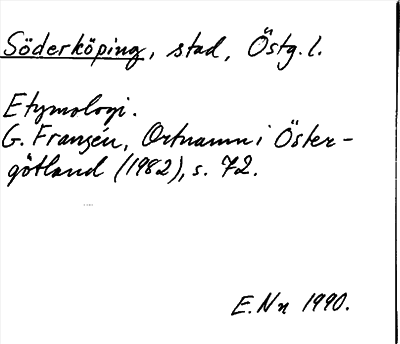 Söderköping, stad, Östg. l.
Etymologi.
G. Franzén, Ortnamn i Öster-
götland (1982), s. 72.
E. Nn 1990.